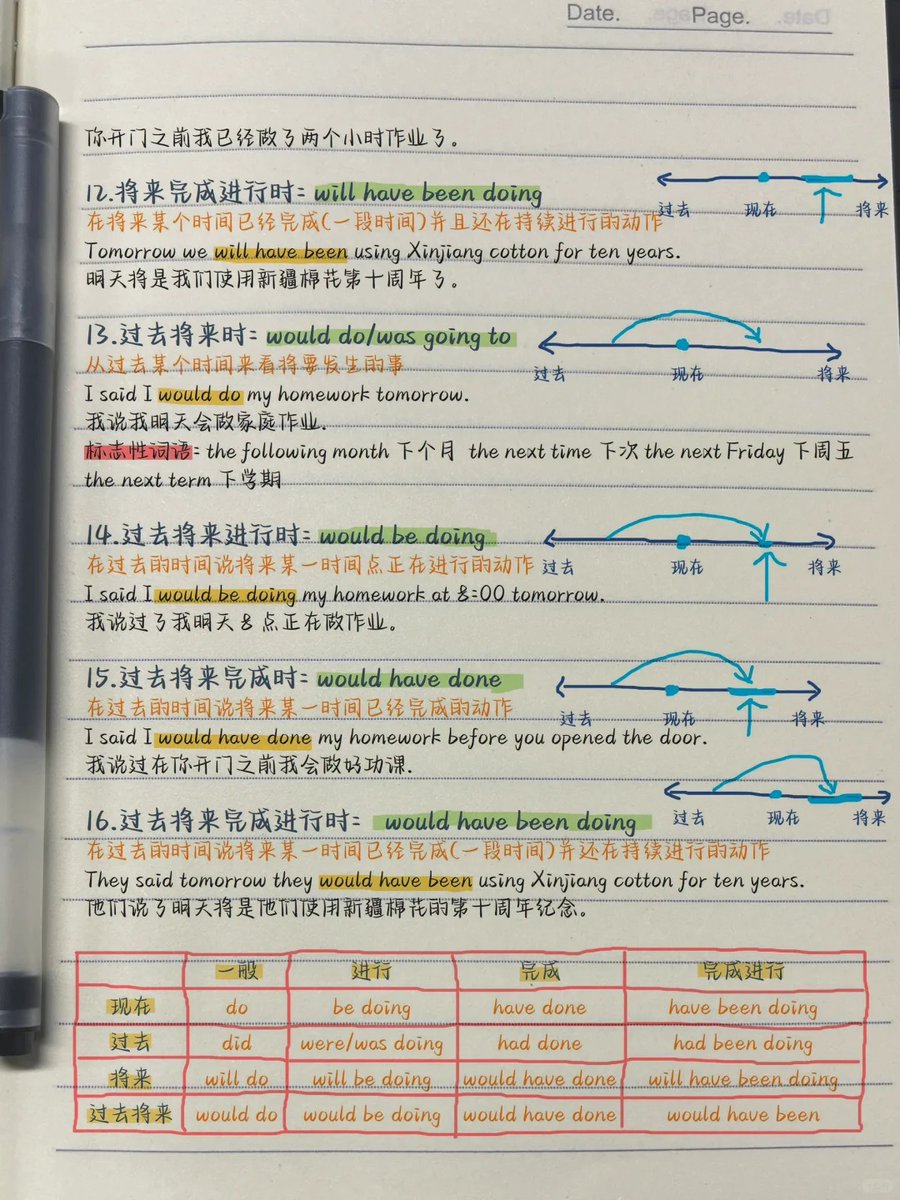 Date. Page.
你开门之前我已经做了两个小时作业了。
12.将来完成进行时: will have been doing
在将来某个时间已经完成(一段时间)并且还在持续进行的动作
过去 现在 将来
Tomorrow we will have been using Xinjiang cotton for ten years.
明天将是我们使用新疆棉花第十周年了。
13.过去将来时: would do/was going to
从过去某个时间来看将要发生的事
过去 现在 将来
I said I would do my homework tomorrow.
我说我明天会做家庭作业.
标志性词语: the following month 下个月 the next time 下次 the next Friday 下周五
the next term 下学期
14.过去将来进行时: would be doing
在过去的时间说将来某一时间点正在进行的动作
过去 现在 将来
I said I would be doing my homework at 8:00 tomorrow.
我说过了我明天8点正在做作业。
15.过去将来完成时: would have done
在过去的时间说将来某一时间已经完成的动作
过去 现在 将来
I said I would have done my homework before you opened the door.
我说过在你开门之前我会做好功课.
16.过去将来完成进行时: would have been doing
过去 现在 将来
在过去的时间说将来某一时间已经完成(一段时间)并还在持续进行的动作
They said tomorrow they would have been using Xinjiang cotton for ten years.
他们说了明天将是他们使用新疆棉花的第十周年纪念。
一般 进行 完成 完成进行
现在 do be doing have done have been doing
过去 did were/was doing had done had been doing
将来 will do will be doing would have done will have been doing
过去将来 would do would be doing would have done would have been